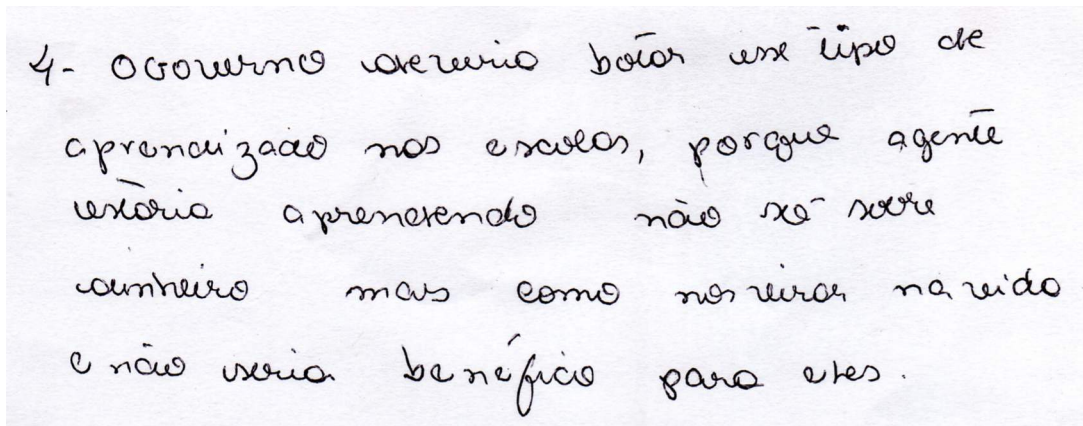 4- O Governo deveria botar esse tipo de
aprendizado nas escolas, porque agente
estaria aprendendo não só sobre
dinheiro mas como nos virar na vida
e não seria benéfico para eles.